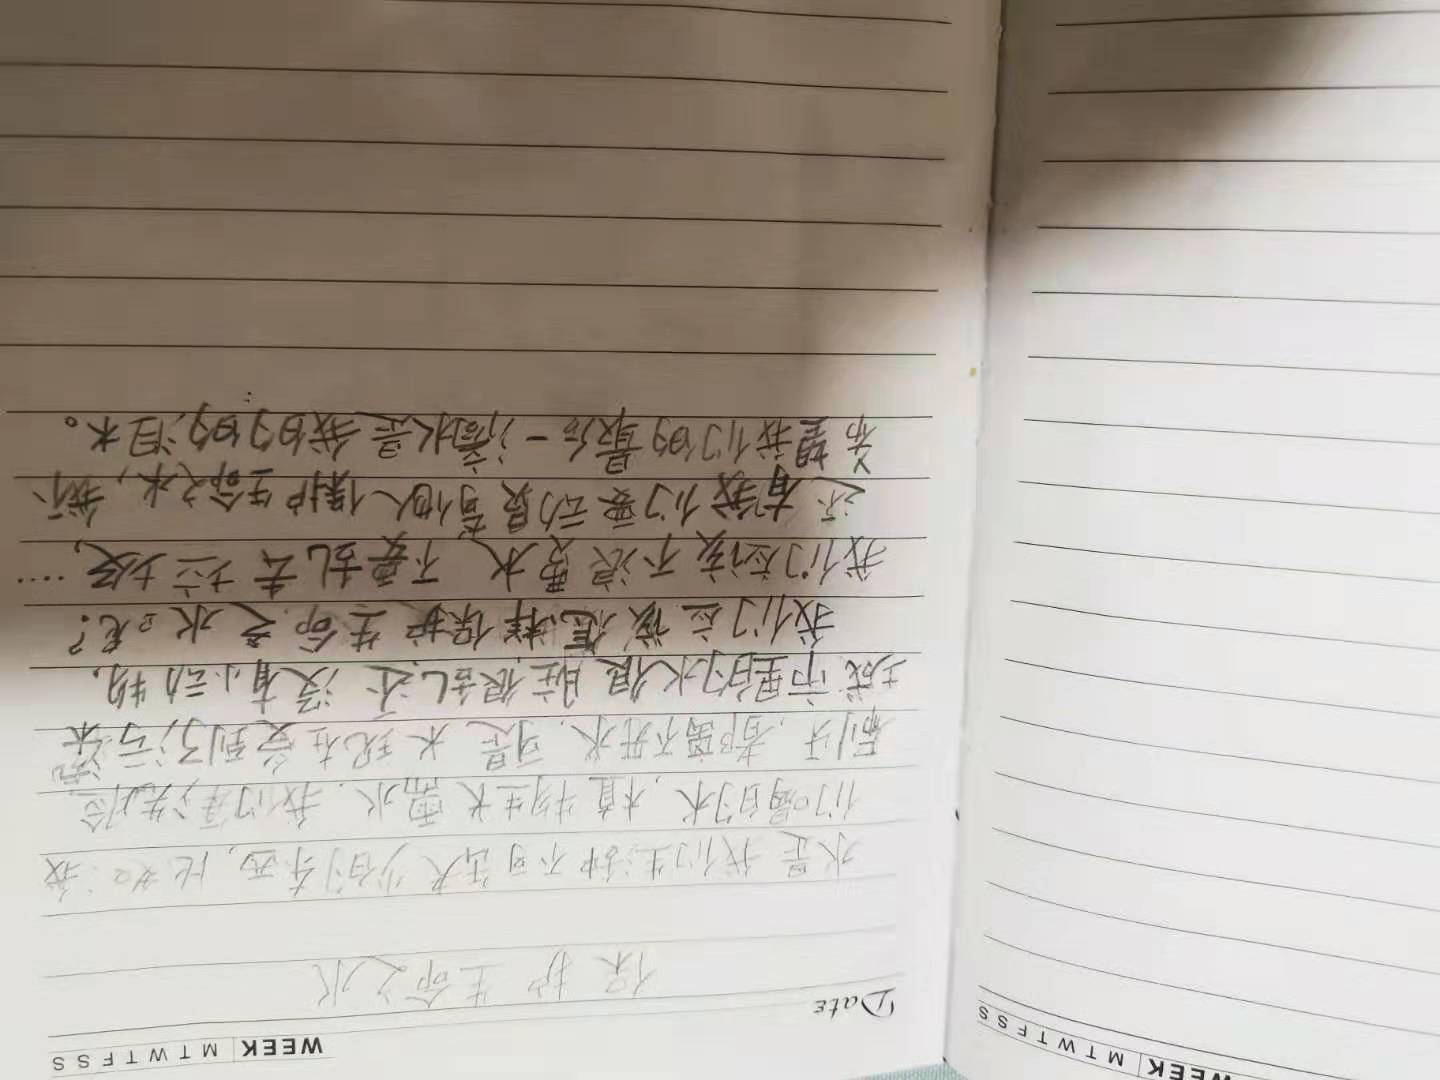 WEEK M T W T F S S
Date
保护生命之水
水是我们生活中不可缺少的东西，比如：我
们喝的水，植物生长需水．我们洗脸
刷牙，都离不开水．可是水现在受到了污染
城市里的水很脏很乱还没有小动物．
我们应该怎样保护生命之水呢？
我们应该不浪费水 不要乱丢垃圾，....
还有我们要动员每个人保护生命之水，我不
希望我们的最后一滴水是我们的泪水。
WEEK M T W T F S S